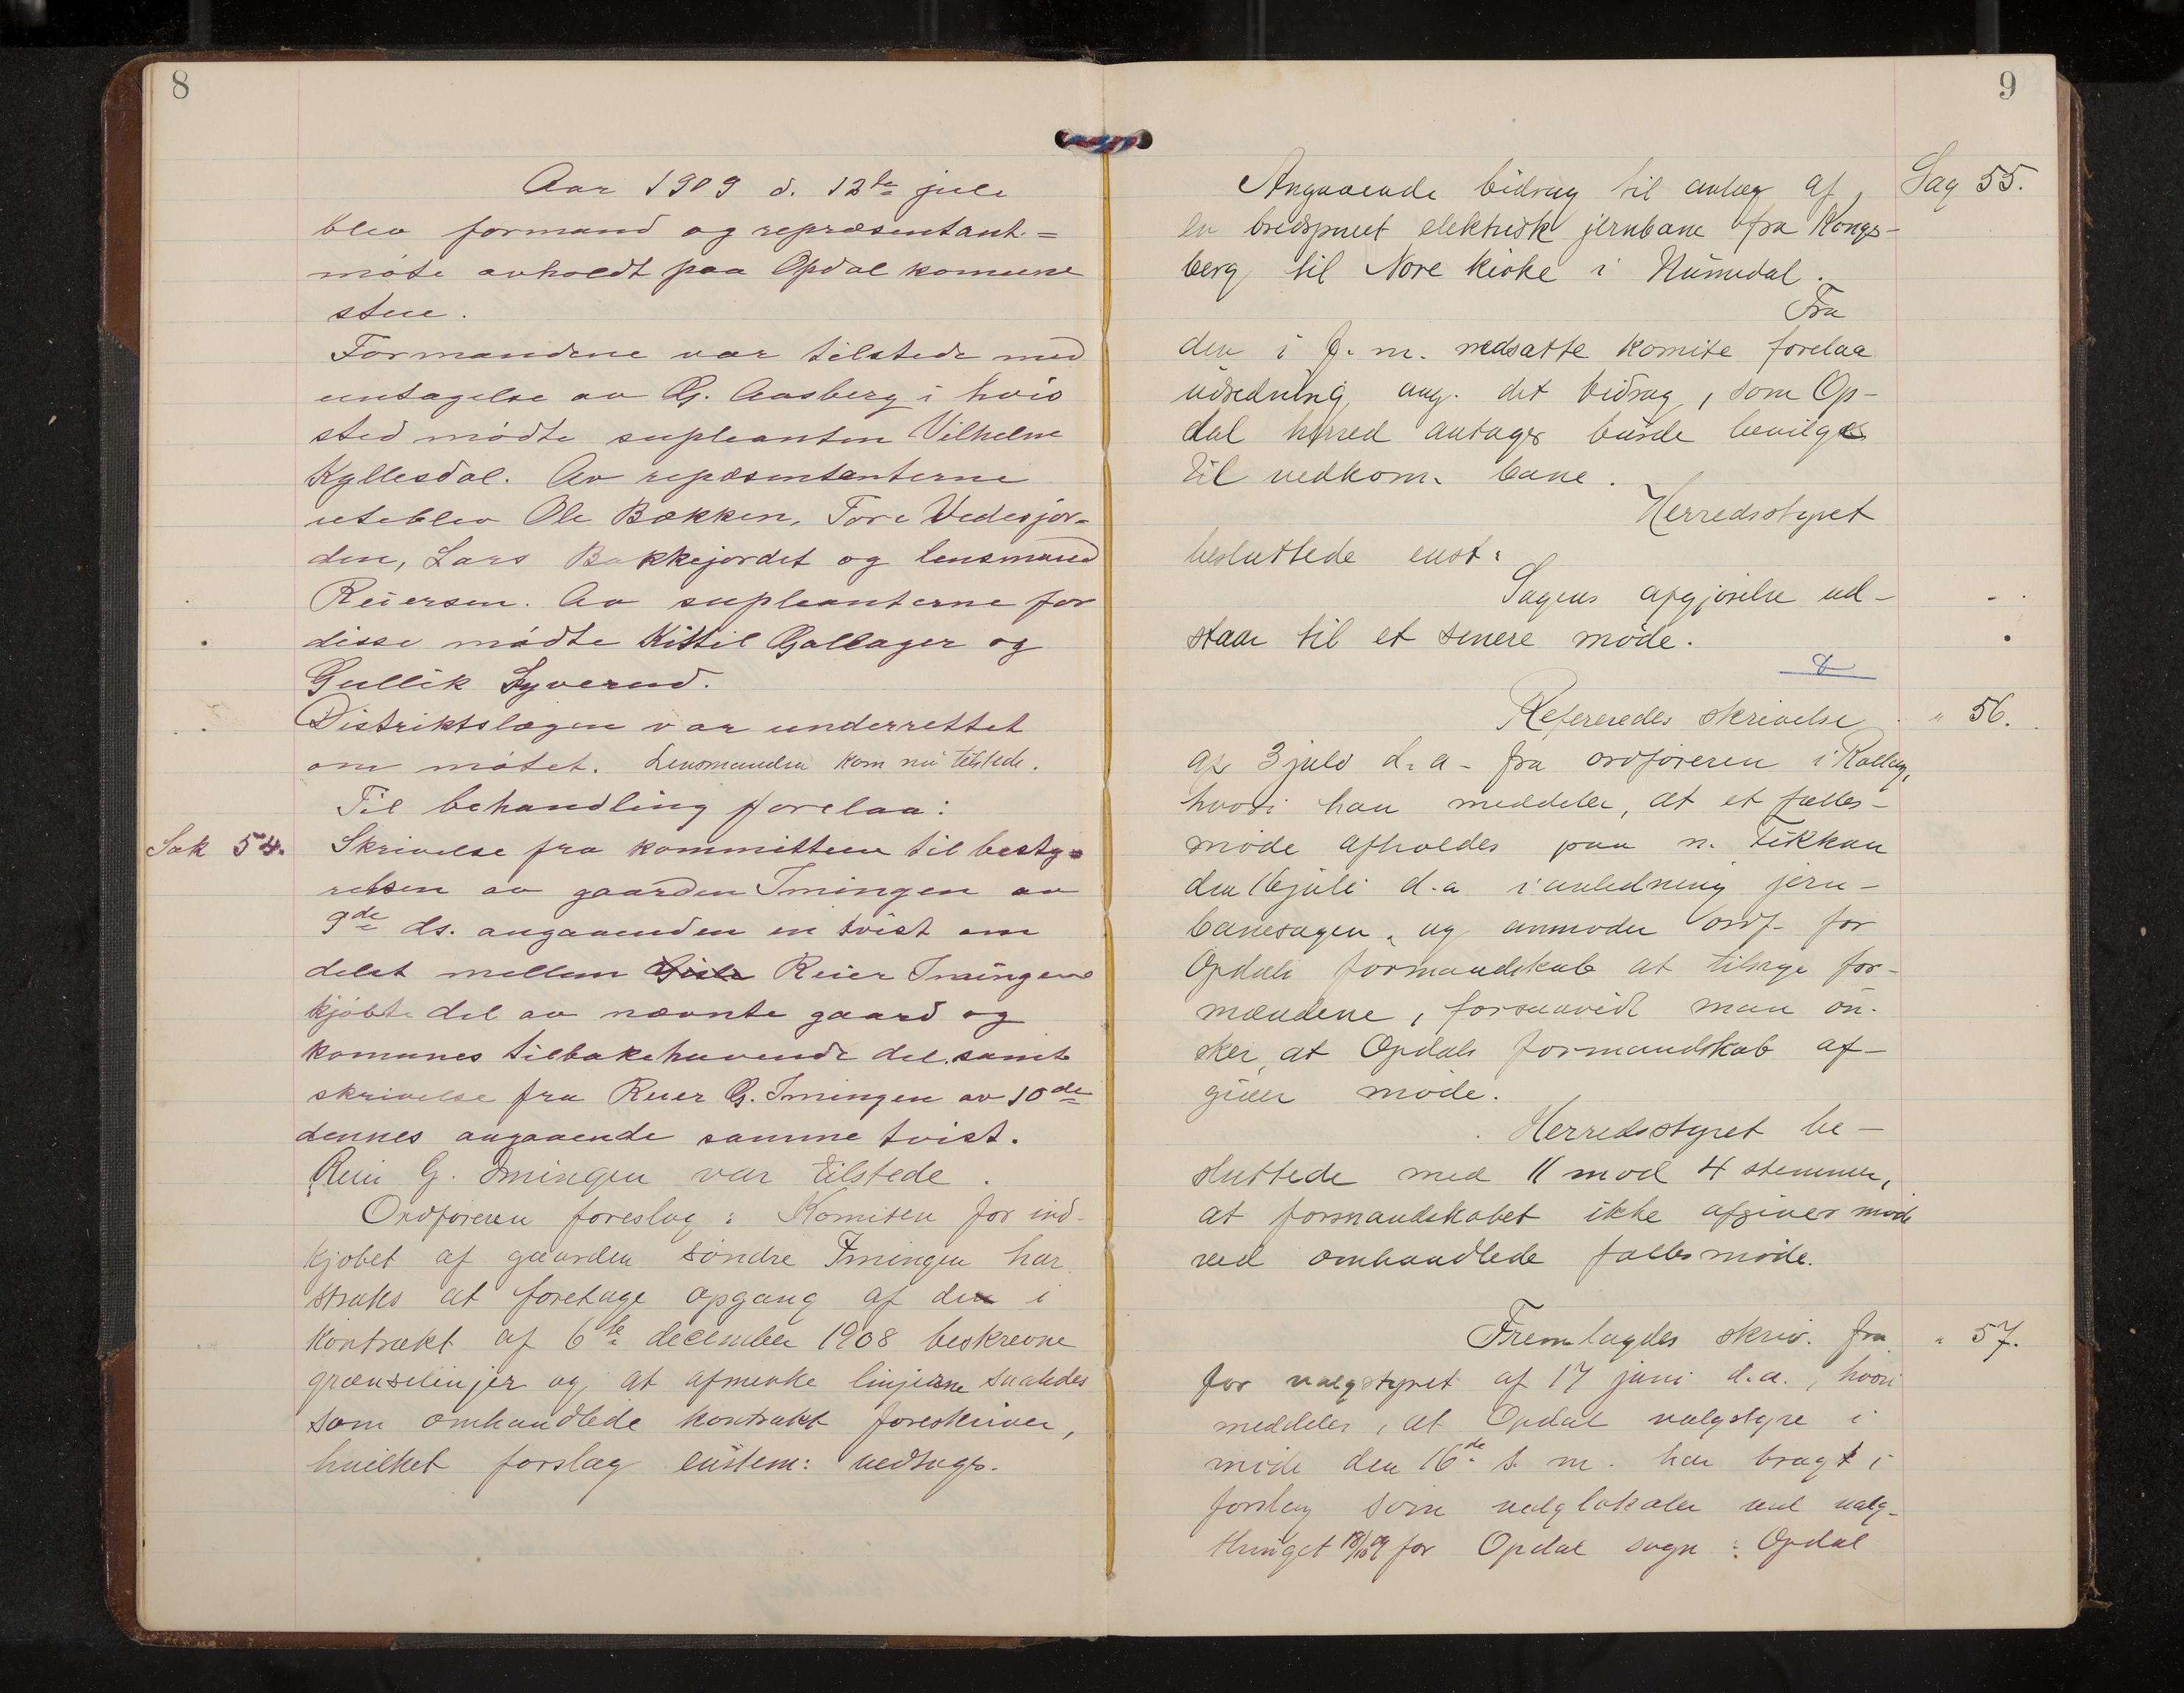 8
Aar 1909 d. 12te juli
blev formand og repræsentant=
møte avholdt paa Opdal komune
stue.
Formændene var tilstede med
untagelse av G. Aasberg i hvis
sted mødte supleanten Vilhelm
Kyllesdal. Av repæsentanterne
uteblev Ole Bakken, Tore Vedesjor-
den, Lars Bakkejordet og lensmand
Reiersen. Av supleanterne for
disse mødte Kittil Gallager og
Gullik Syverud.
Distriktslægen var underrettet
om møtet. Lensmanden kom nu tilstede.
Til behandling forelaa:
Sak 54. Skrivelse fra kommitteen til besty=
relsen av gaarden Imingen av
9de ds. angaaenden en tvist om
delet mellem Reier Imingens
kjøbte del av nævnte gaard og
komunes tilbakehavende del samt
skrivelse fra Reier G. Imingen av 10de
dennes angaaende samme tvist.
Reier G. Imingen var tilstede.
Ordføreren foreslog: Komiteen for ind-
kjøbet af gaarden søndre Imingen har
straks at foretage opgang af den i
kontrakt af 6te december 1908 beskrevne
grænselinjer og at afmerke linjerne saaledes
som omhandlede kontrakt foreskriver,
hvilket forslag enstem: vedtoges.
9
Sag 55.
Angaaende bidrag til anlæg af
en bredsporet elektrisk jernbane fra Kongs-
berg til Nore kirke i Numedal.
Fra
den i f. m. nedsatte komite forelaa
udredning ang. det bidrag, som Op-
dal herred antages burde bevilges
til vedkom. bane.
Herredsstyret
besluttede enst:
Sagens afgjørelse ud-
staar til et senere møde.
" 56.
Refereredes skrivelse
af 3 juli d. a. fra ordføreren i Rollag,
hvori han meddeler, at et fælles-
møde afholdes paa n. Fikkan
den 16 juli d.a. i anledning jern-
banesagen, og anmoder ordf. for
Opdals formandskab at tilsige for-
mændene, forsaavidt man øn-
sker, at Opdals formandskab af-
giver møde.
Herredsstyret be-
sluttede med 11 mod 4 stemmer,
at formandskabet ikke afgiver møde
ved omhandlede fællesmøde.
" 57.
Fremlagdes skriv. fra
for valgstyret af 17 juni d.a., hvori
meddeles, at Opdal valgstyre i
møde den 16de s. m. har bragt i
forslag som valglokaler ved valg-
thinget 18/10 09 for Opdal sogn: Opdal